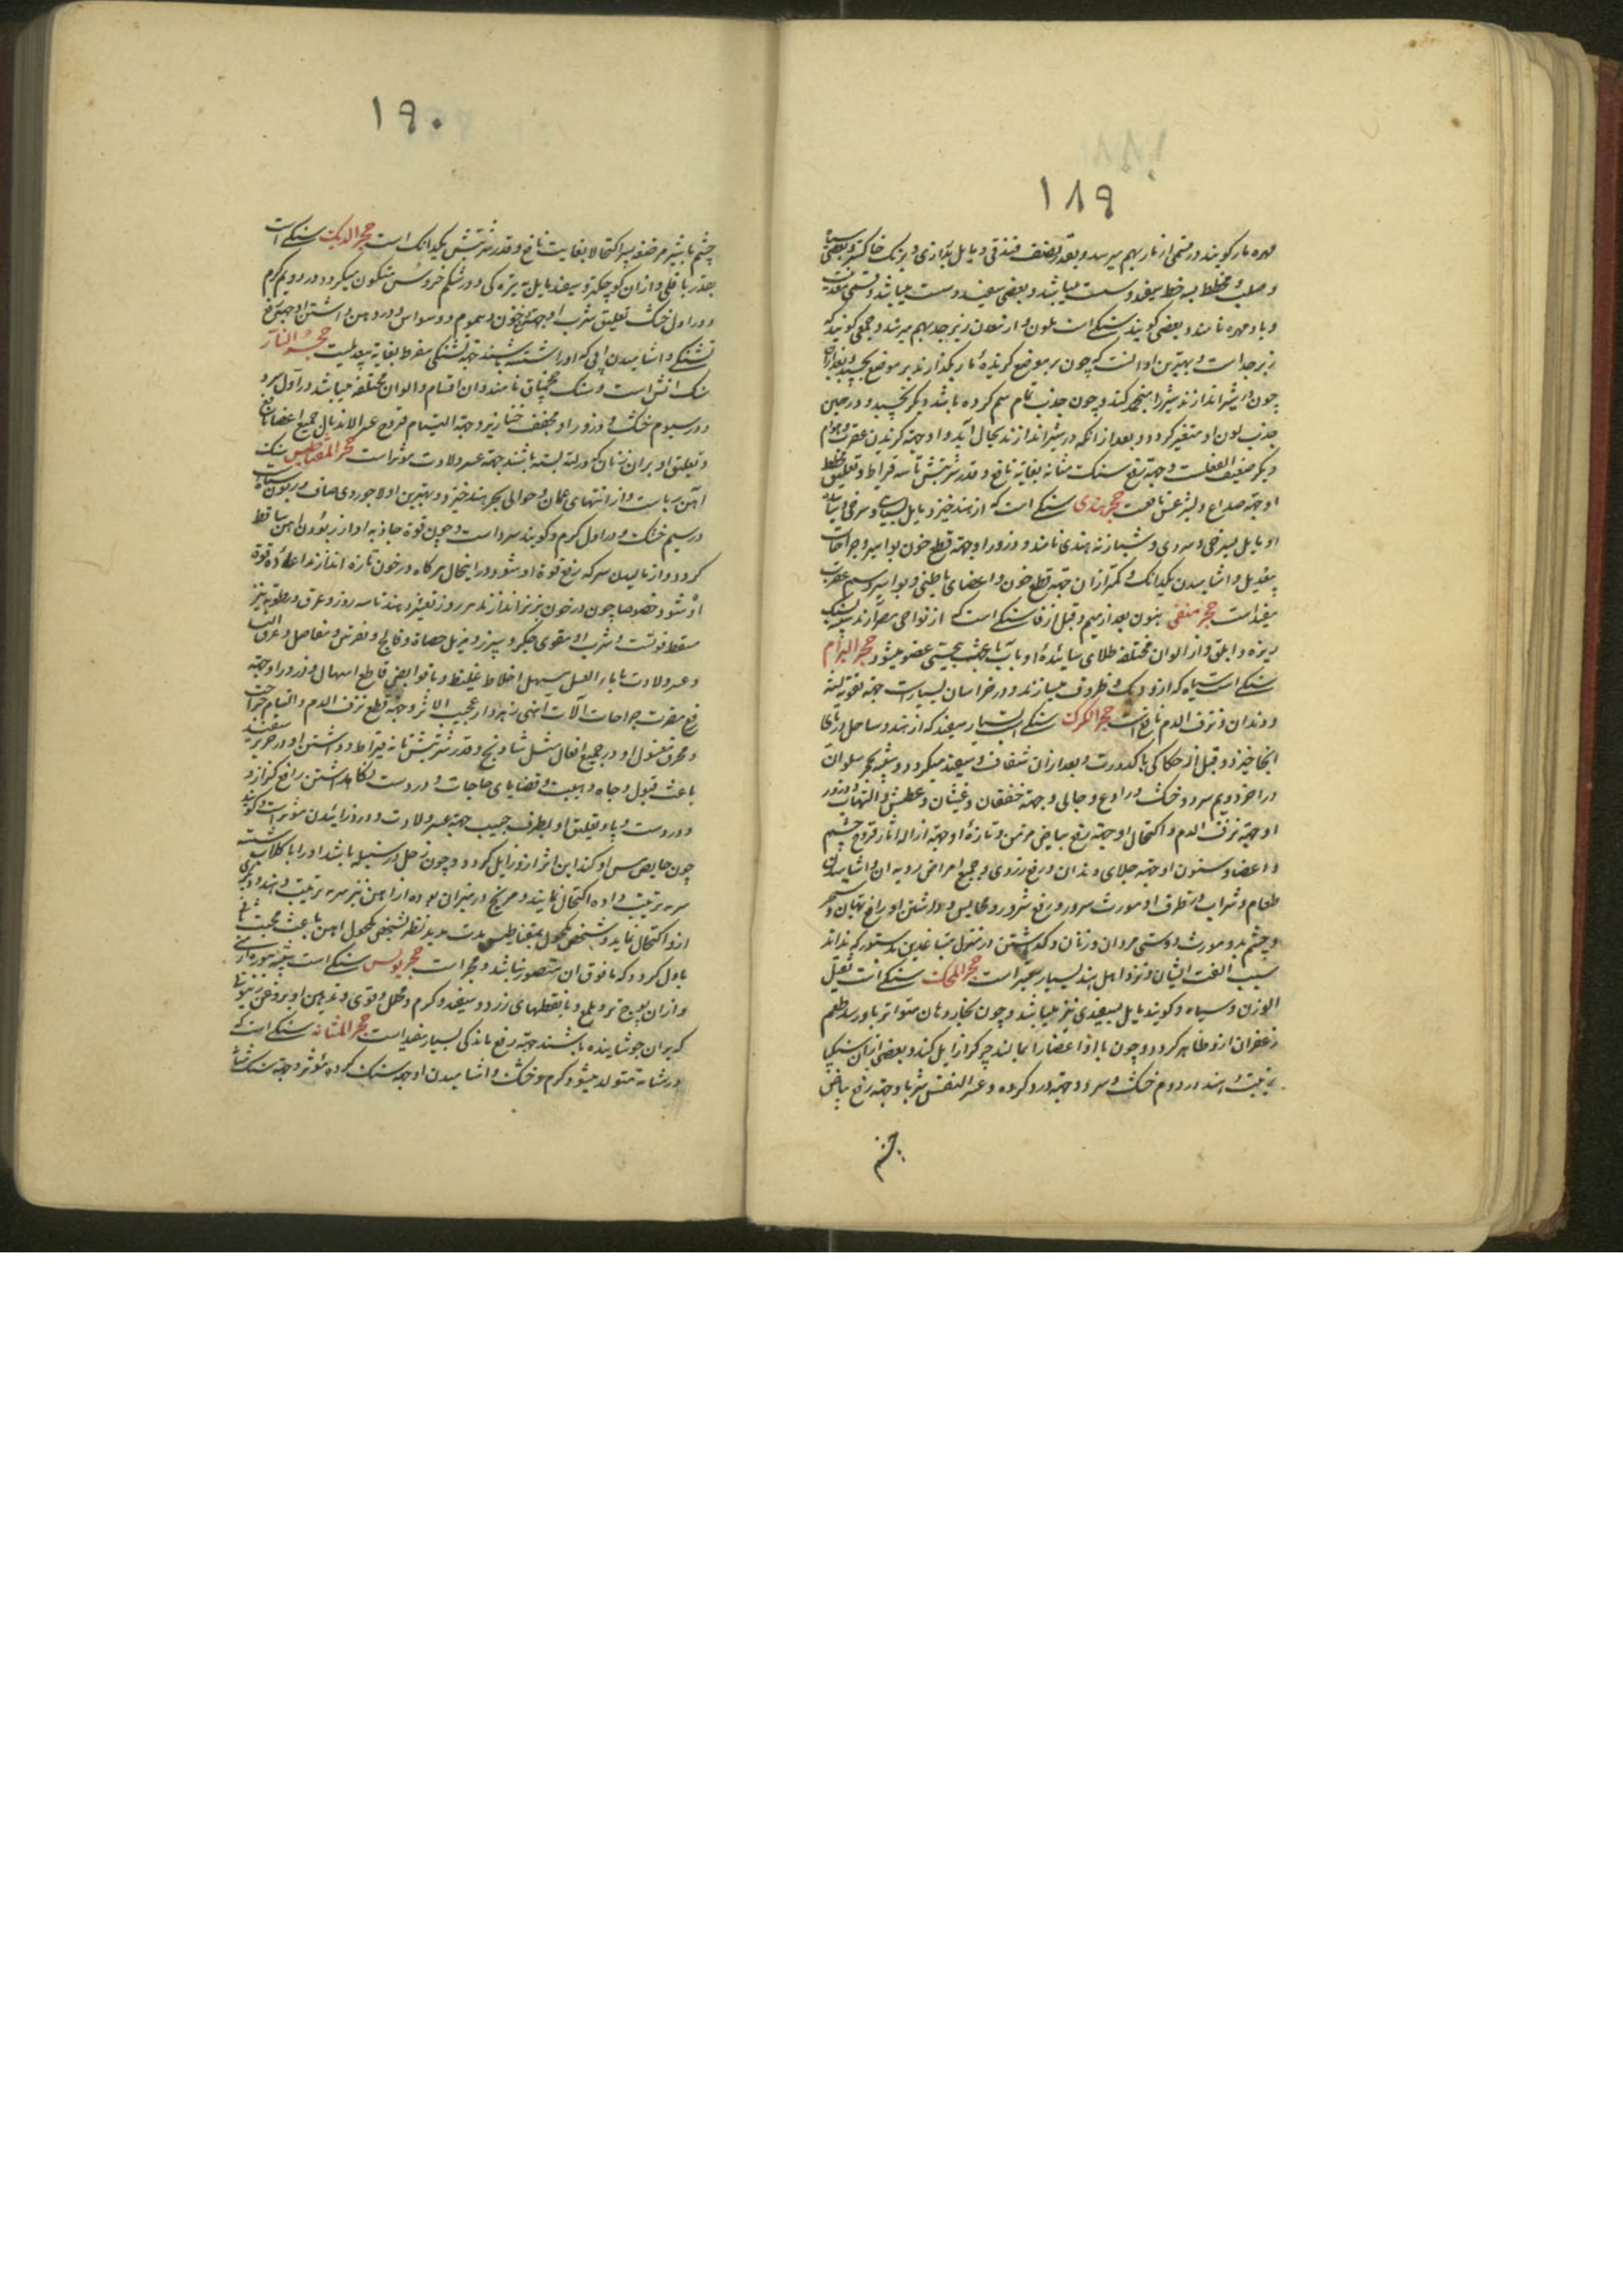 ۱۸۹
مهره مار کویند در قسمی از مار بهم میرسد و بقدر نصف فندقی و مایل بدرازی و برنک خاکستر و بعضی سیاه
و صلب و مخطط بسه خط میشود و سست میباشد و بعضی سفید و سست میباشد و قسمی معدنیست
و باد مهره نامند و بعضی کویند سنکے است ملون و از معدن زبرجد بهم میرسد و جمعی کویند که
زبرجد است و بهترین او انست که چون بر موضع کزیده مار بکذارند بر موضع بچسبد و بعد از ان
چون در شیر اندازند شیر را منجمد کند و چون جذب تمام سم کرده باشد دیکر نچسبد و در حین
جذب لون او متغیر کردد و بعد از انکه در شیر اندازند بحال آید و او جهة کزیدن عقرب و هوام
دیکر ضعیف الفعلست و جهة رفع سنک مثانه بغایة نافع و قدر شربتش تا سه قیراط و تعلیق مخطط
او جهة صداع و لیثرغس نافعست حجر هندی سنکے است که از هند خیزد مایل بسیاهی و سرخی و بیاض
او مایل بسرخی و زردی و شیرازیه هندی نامند و ذرور او جهة قطع خون بواسیر و جراحات
بیعدیل و اشامیدن یکدانک و کمتر از ان جهة قطع خون و اعضای باطنی و بواسیر و سم عقرب
مفید است حجر منفی بنون بعد از میم و قبل از فا سنکے است که از نواحی مصر آرند شبیه بسنک
ریزه و ابلق و از الوان مختلفه طلای سائیده او با آب باعث بیحسی عضو میشود حجر البرام
سنکے است سیاه که ازو دیک و ظروف میسازند و در خراسان بسیار است جهة تقویة لثه
و دندان و نزف الدم نافع است حجر الکرک سنکے است بسیار سفید که از هند و ساحل دریای
انجا خیزد و قبل از حکاکی با کدورت و بعد از ان شفاف و سفید میکردد و شبیه بحجر سلوان
در اخر دویم سرد و خشک و رادع و جالی و جهة خفقان و غثیان و عطش و التهاب و ذرور
او جهة نزف الدم و اکتحال او جهة رفع بیاض مزمن و تازه او جهة ازاله اثار قروح چشم
و اعضا و سنون او جهة جلای دندان و رفع زردی و جمیع امراض ردیه ان و اشامیدن
طعام و شراب در ظرف او مورث سرور و رفع شرور و مخالیس و داشتن او رافع بهتان و سحر
و چشم بد و مورث دوستی مردان و زنان و کذاشتن در منزل متباغضین بدستوری که ندانند
سبب الفت ایشان و نزد اهل هند بسیار معتبر است حجر المحک سنکے است ثقیل
الوزن و سیاه و کویند مایل بسفیدی نیز میباشد و چون بخار دهان متواتر باو رسد طعم
زعفران ازو ظاهر کردد و چون با او اعضا را بمالند چرک را زایل کند و بعضی ازان سنکپا
ترتیب دهند در دوم خشک و سرد و جهة درد کرده و عسر النفس شربا و جهة رفع بیاض
چشم
۱۹۰
چشم با شیر مرضعه پسر اکتحالا بغایت نافع و قدر شربتش یکدانک است حجر الدیک سنکے است
بقدر باقلی و از ان کوچکتر و سفید مایل به تیره کی و در شکم خروس متکون میکردد در دویم کرم
و در اول خشک تعلیق و شرب او جهة خون و هموم و وسواس و در دهن داشتن او جهة رفع
تشنکے و اشامیدن آبی که او را شسته باشند جهة تشنکی مفرط بغایة بیعدیلست حجر النار
سنک اتش است و سنک چخماق نامند و ان اقسام و الوان مختلفه میباشد در اول سرد
و در سیوم خشک و ذرور او مجفف خنازیر و جهة التیام قروح عسر الاندمال جمیع اعضا نافع
و تعلیق او بر ران زنان که در لته بسته باشند جهة عسر ولادت موثر است حجر المغناطیس سنک
آهن رباست و از انتهای عمان و حوالی بحر هند خیزد و بهترین او لاجوردی صاف و ربون سیاه
در سیم خشک و در اول کرم و کویند سرد است و چون قوة جاذبه او از ربودن اهن ساقط
کردد و از مالیدن سرکه رفع قوة او شود در اینحال هرکاه در خون تازه اندازند اعاده قوة
او شود خصوصا چون در خون بز نر اندازند هر روز تغییر دهند تا سه روز و عرق و رطوبة نیز
مسقط قوتست و شرب او مقوی جکر و سپرز و مزیل حصاة و فالج و نقرس و مفاصل و عرق النسا
و عسر ولادت با ماء العسل مسهل اخلاط غلیظ و با قوابض قاطع اسهال و ذرور او جهة
رفع مضرت جراحات آلات آهنی زهردار عجیب الاثر و جهة قطع نزف الدم و التیام جراحت
و محرق مغسول او در جمیع افعال مثل شادنج و قدر شربتش تا نه قیراط و داشتن او در حریر سفید
باعث قبول و جاه و هیبت و قضایای حاجات و در دست نکاه داشتن رافع کزاز و
درد دست و پا و تعلیق او بطرف جیب جهة عسر ولادت و در زائیدن موثر است و کویند
چون حایض مس او کند این اثر ازو زایل کردد و چون زحل در سنبله باشد او را با کلاب شسته
سرمه ترتیب داده اکتحال نمایند و مریخ در میزان بوده از اهن نیز سرمه ترتیب دهند و دیکری
ازو اکتحال نماید و شخص مکحول بمغناطیس مدت مدید نظر بشخص مکحول اهن باعث محبت
باول کردد که ما فوق ان متصور نباشد و مجر است حجر یونس سنکے است شبیه
و از ان بوج تر و با نقطهای زرد و سفید و کرم و محلل و قوی و تدهین او بروغن زیتون
که بر ان جوشانیده باشند جهة رفع ماندکی بسیار مفید است حجر المثانه سنکے است که
در مثانه متولد میشود کرم و خشک و اشامیدن او جهة سنک کرده موثر و جهة سنک مثانه